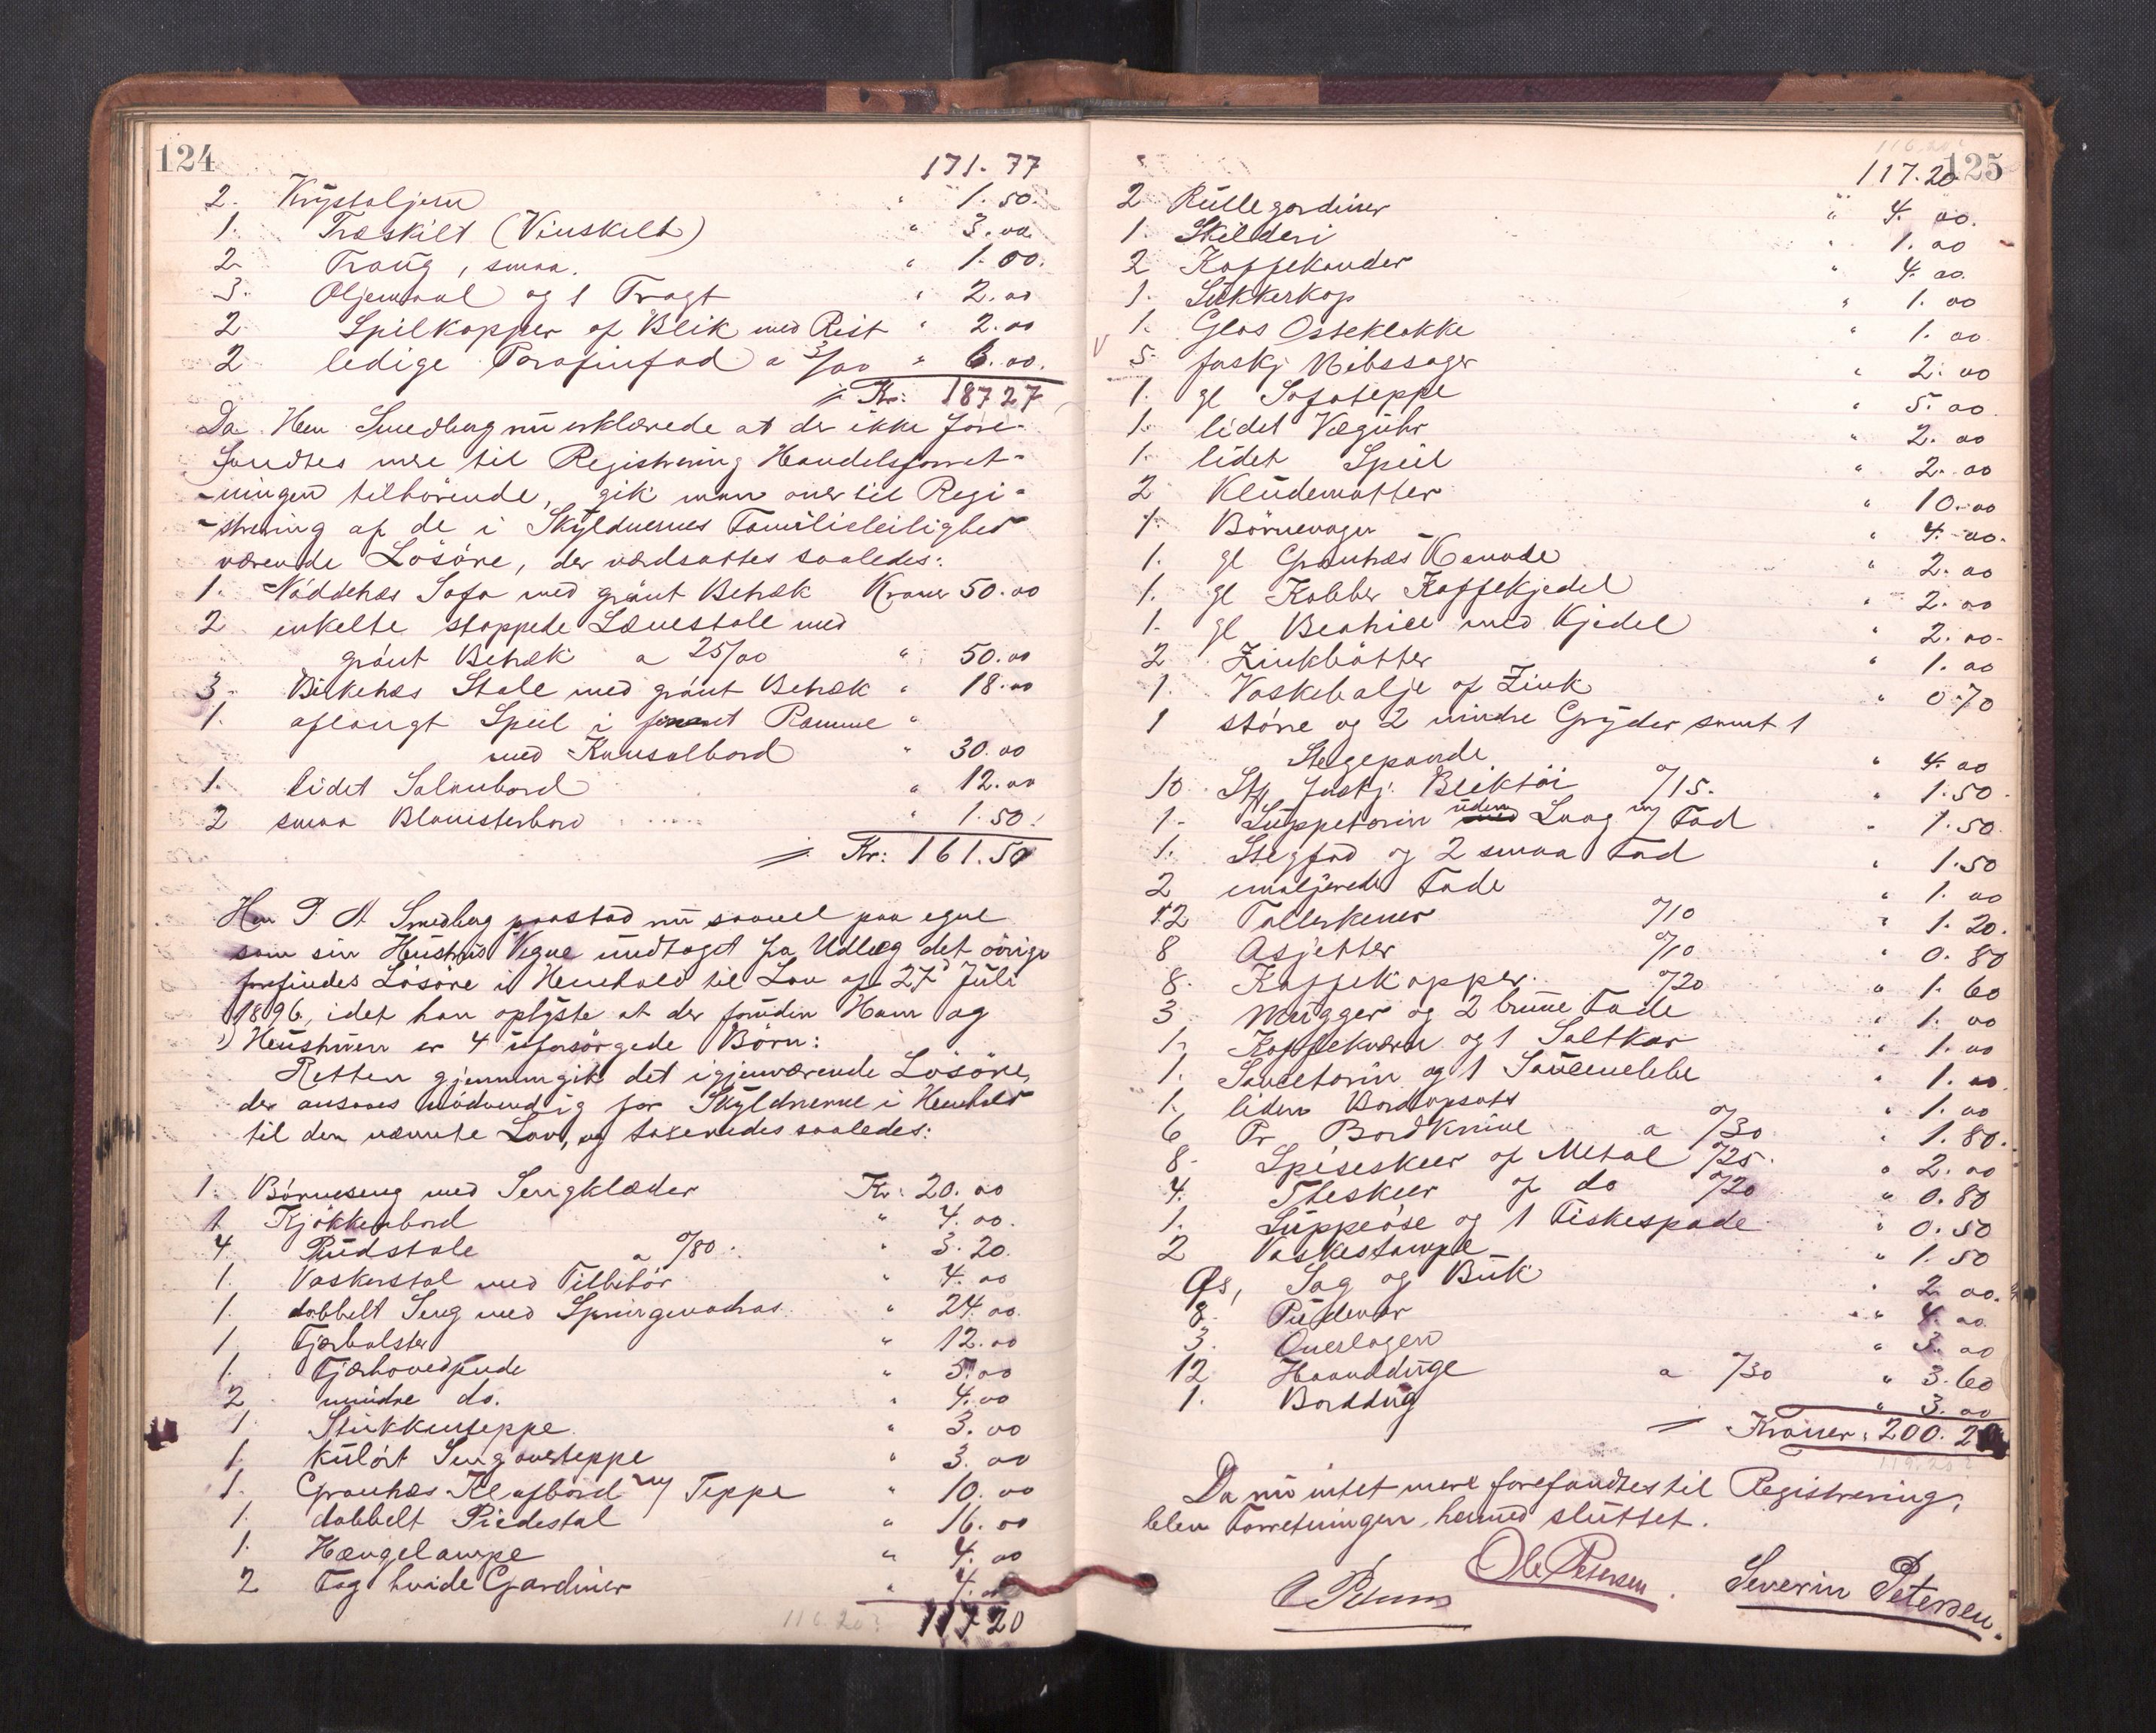 124
171.77
2. Krystaljern " 1.50.
1. Træskilt (Vinskilt) " 3.00
2 Traug, smaa. " 1.00.
3. Oljemaal og 1 Tragt " 2.00
2 Spilkopper af Blik med Rist " 2.00
2 ledige Parafinfad a 3/00 " 6.00.
Kr: 187 27
Da Herr Smedberg nu erklærede at der ikke fore-
fandtes mere til Registrering Handelsforret-
-ningen tilhörende, gik man over til Regi-
-strering af de i Skyldnernes Familieleilighed
værende Lösöre, der værdsattes saaledes:
1. Nöddetræs Sofa med grönt Betræk Kroner 50.00
2 enkelte stoppede Lænestole med
grönt Betræk a 25/00 " 50.00
3. Birketræs Stole med grönt Betræk " 18.00
1. aflangt Speil i Ramme "
med Konsolbord " 30.00
1. lidet Salonbord " 12.00
2 smaa Blomsterbord " 1.50.
Kr: 161.50
Herr P. A. Smedberg paastod nu saavel paa egne
som sin Hustrus Vegne undtaget fra Udlæg det övrige
forefindes Lösöre i Henhold til Lov af 27d Juli
1896, idet han oplyste at der foruden Ham og
Hustruen er 4 uforsörgede Börn:
Retten gjennemgik det igjenværende Lösöre,
der ansaaes nödvendig for Skyldnerne i Henhold
til den nævnte Lov, og taxeredes saaledes:
1. Börneseng med Sengklæder Kr: 20.00
1 Kjökkenbord " 4.00.
4 Pindstole a 0/80. " 3.20.
1. Vaskerstol med Tilbehör " 4.00
1. dobbelt Seng med Springmadras " 24.00.
1 Fjærbolster " 12.00
1. Fjærhovedpude " 5.00
2 mindre do. " 4.00
1. Stukkenteppe " 3.00
1. kulört Sengoverteppe " 3.00
1. Grantræs Klafbord m/ Teppe " 10.00
1. dobbelt Piedestal " 16.00
1. Hængelampe " 4.00
2 Fag hvide Gardiner " 4.00
116.20?
117 20
116.20?
125
117.20
2 Rullegardiner " 4.00.
1. Skilderi " 1.00
2 Kaffekander " 4.00
1. Sukkerkop " 1.00
1. Glas Osteklokke " 1.00
5. forskj Nibssager " 2.00
1. gl Sofateppe " 5.00
1. lidet Væguhr " 2.00
1. lidet Speil " 2.00
2 Kludematter " 10.00
1. Börnevogn " 4.00.
1. gl Grantræs Komode " 2.00
1. gl Kobber Kaffekjedel " 2.00
1. gl Beatrice med Kjedel " 2.00
2 Zinkbötter " 1.00
1. Vaskebalje af Zink " 0.70
1 större og 2 mindre Gryder samt 1
Stegepande " 4.00
10 Stk forskj. Bliktöi 0/15. " 1.50
1. Suppeterin uden Laag m/ Fad " 1.50
1. Stegfad og 2 smaa Fad " 1.50
2 emaljerede Fade " 1.00
12 Tallerkener 0/10 " 1.20.
8 Asjetter 0/10 " 0.80
8. Kaffekopper. 0/20 " 1.60
3 Mugger og 2 brune Fade " 1.00
1. Kaffekværn og 1 Saltkar " 1.00
1. Sauceterin og 1 Saucenebbe " 1.00
1. liden Bordopsats " 1.00
6 Pr Bordknive a 0/30 " 1.80.
8. Spiseskeer af Metal 0/25. " 2.00
4. Theskeer af do 0/20 " 0.80
1. Suppeöse og 1 Fiskespade " 0.50
2 Vaskestampe " 1.50
Qs, Sag og Buk " 2.00.
8. Pudevar " 4.00
3. Overlagen " 3.00
12 Haandduge a 0/30 " 3.60
1. Borddug " 3.00
Kroner: 200.20
Da nu intet mere forefandtes til Registrering,
blev Forretningen hermed sluttet.
Ole Petersen. Severin Petersen.